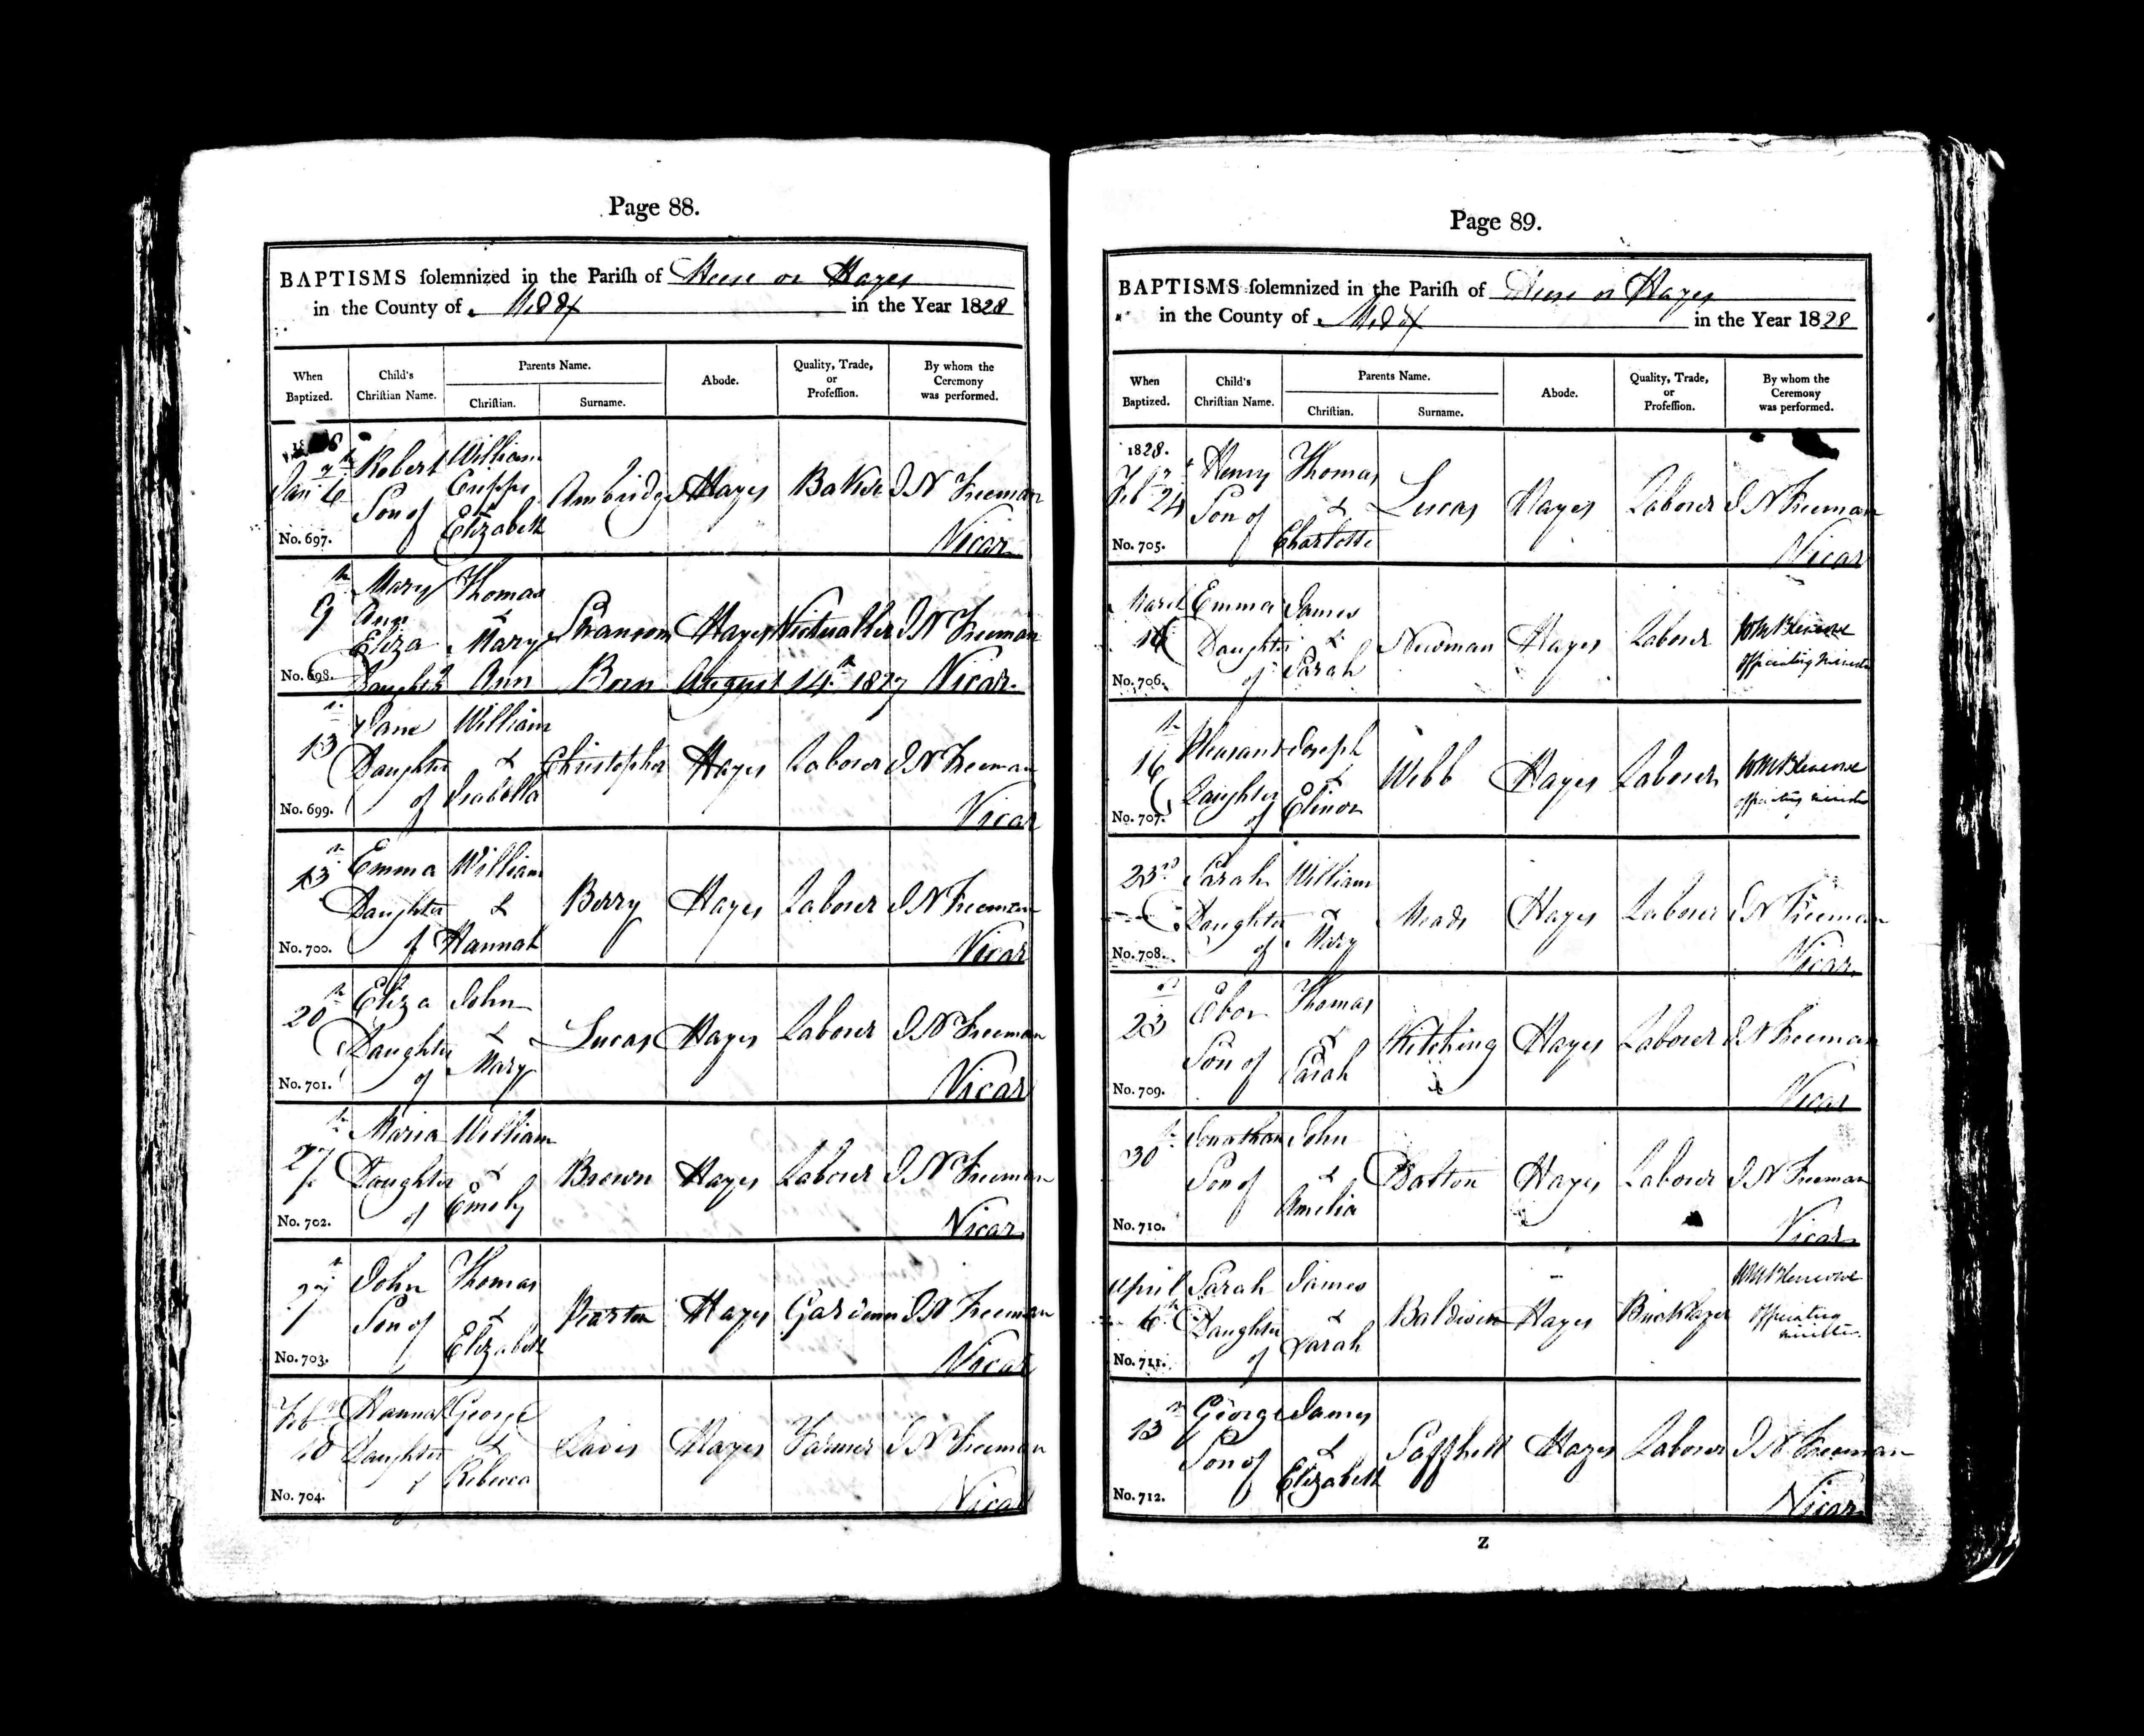 Page 88.
BAPTISMS solemnized in the Parish of Hese or Hayes
in the County of Middx in the Year 1828
When Baptized. Child's Christian Name. Parents Name. Christian. Surname. Abode. Quality, Trade, or Profession. By whom the Ceremony was performed.
Jany 6 Robert Son of William Cripps & Elizabeth Ambridge Hayes Baker J N Freeman Vicar
No. 697.
9th Mary Ann Eliza Daughtr Thomas & Mary Ann Swansom Hayes Victualler J N Freeman Vicar
No. 698. Born August 14th 1827
13th Jane Daughter of William & Isabella Christopher Hayes Labourer J N Freeman Vicar
No. 699.
13th Emma Daughter of William & Hannah Berry Hayes Labourer J N Freeman Vicar
No. 700.
20th Eliza Daughter of John & Mary Lucas Hayes Labourer J N Freeman Vicar
No. 701.
27th Maria Daughter of William & Emely Brown Hayes Labourer J N Freeman Vicar
No. 702.
27th John Son of Thomas & Elizabeth Hayes Gardener J N Freeman Vicar
No. 703.
Feby 10 Hannah Daughter of George & Rebecca Davis Hayes Farmer J N Freeman Vicar
No. 704.
Page 89.
BAPTISMS solemnized in the Parish of Hese or Hayes
in the County of Middx in the Year 1828
When Baptized. Child's Christian Name. Parents Name. Christian. Surname. Abode. Quality, Trade, or Profession. By whom the Ceremony was performed.
1828.
Feby 24 Henry Son of Thomas & Charlotte Lucas Hayes Labourer J N Freeman Vicar
No. 705.
March 16 Emma Daughter of James & Sarah Newman Hayes Labourer officiating minister
No. 706.
16th Pleasant Daughter of Joseph & Elinor Webb Hayes Labourer officiating minister
No. 707.
23rd Sarah Daughter of William & Mary Meads Hayes Labourer J N Freeman Vicar
No. 708.
23rd Ebor Son of Thomas & Sarah Kitching Hayes Labourer J N Freeman Vicar
No. 709.
30th Jonathan Son of John & Amelia Batton Hayes Labourer J N Freeman Vicar
No. 710.
April 6th Sarah Daughter of James & Sarah Baldwin Hayes Bricklayer officiating minister
No. 711.
13th George Son of James & Elizabeth Hayes Labourer J N Freeman Vicar
No. 712.
Z